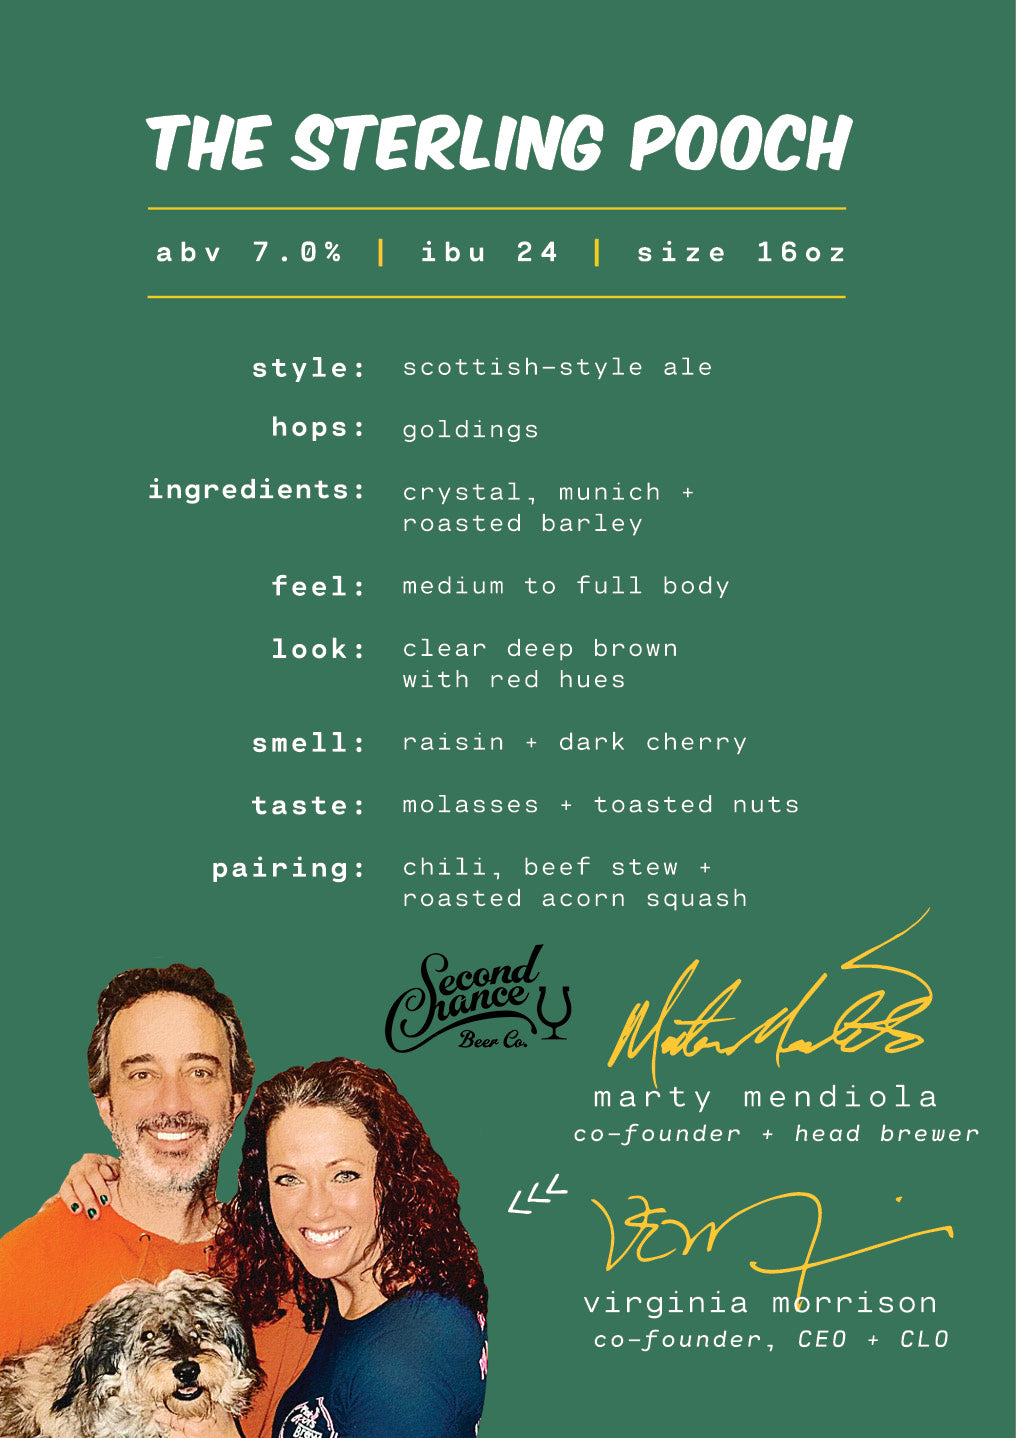 THE STERLING POOCH
abv 7.0% | ibu 24 | size 16oz
style: scottish-style ale
hops: goldings
ingredients: crystal, munich +
roasted barley
feel: medium to full body
look: clear deep brown
with red hues
smell: raisin + dark cherry
taste: molasses + toasted nuts
pairing: chili, beef stew +
roasted acorn squash
Second
Chance
Beer Co.
marty mendiola
co-founder + head brewer
virginia morrison
co-founder, CEO + CLO